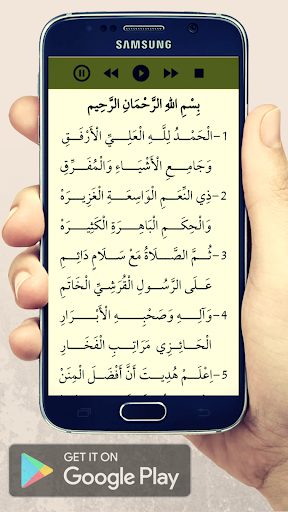 SAMSUNG
بِسْمِ اللهِ الرَّحْمَانِ الرَّحِيمِ
1– الْحَمْدُ لِلَّهِ الْعَلِيِّ الْأَرْفَقِ
وَجَامِعِ الْأَشْيَاءِ وَالْمُفَرِّقِ
2– ذِي النِّعَمِ الْوَاسِعَةِ الْغَزِيرَهْ
وَالْحِكَمِ الْبَاهِرَةِ الْكَثِيرَهْ
3– ثُمَّ الصَّلَاةُ مَعْ سَلَامٍ دَائِمِ
عَلَى الرَّسُولِ الْقُرَشِيِّ الْخَاتَمِ
4– وَآلِهِ وَصَحْبِهِ الْأَبْرَارِ
الْحَائِزِي مَرَاتِبَ الْفَخَارِ
5– اِعْلَمْ هُدِيتَ أَنَّ أَفْضَلَ الْمِنَنْ
GET IT ON
Google Play